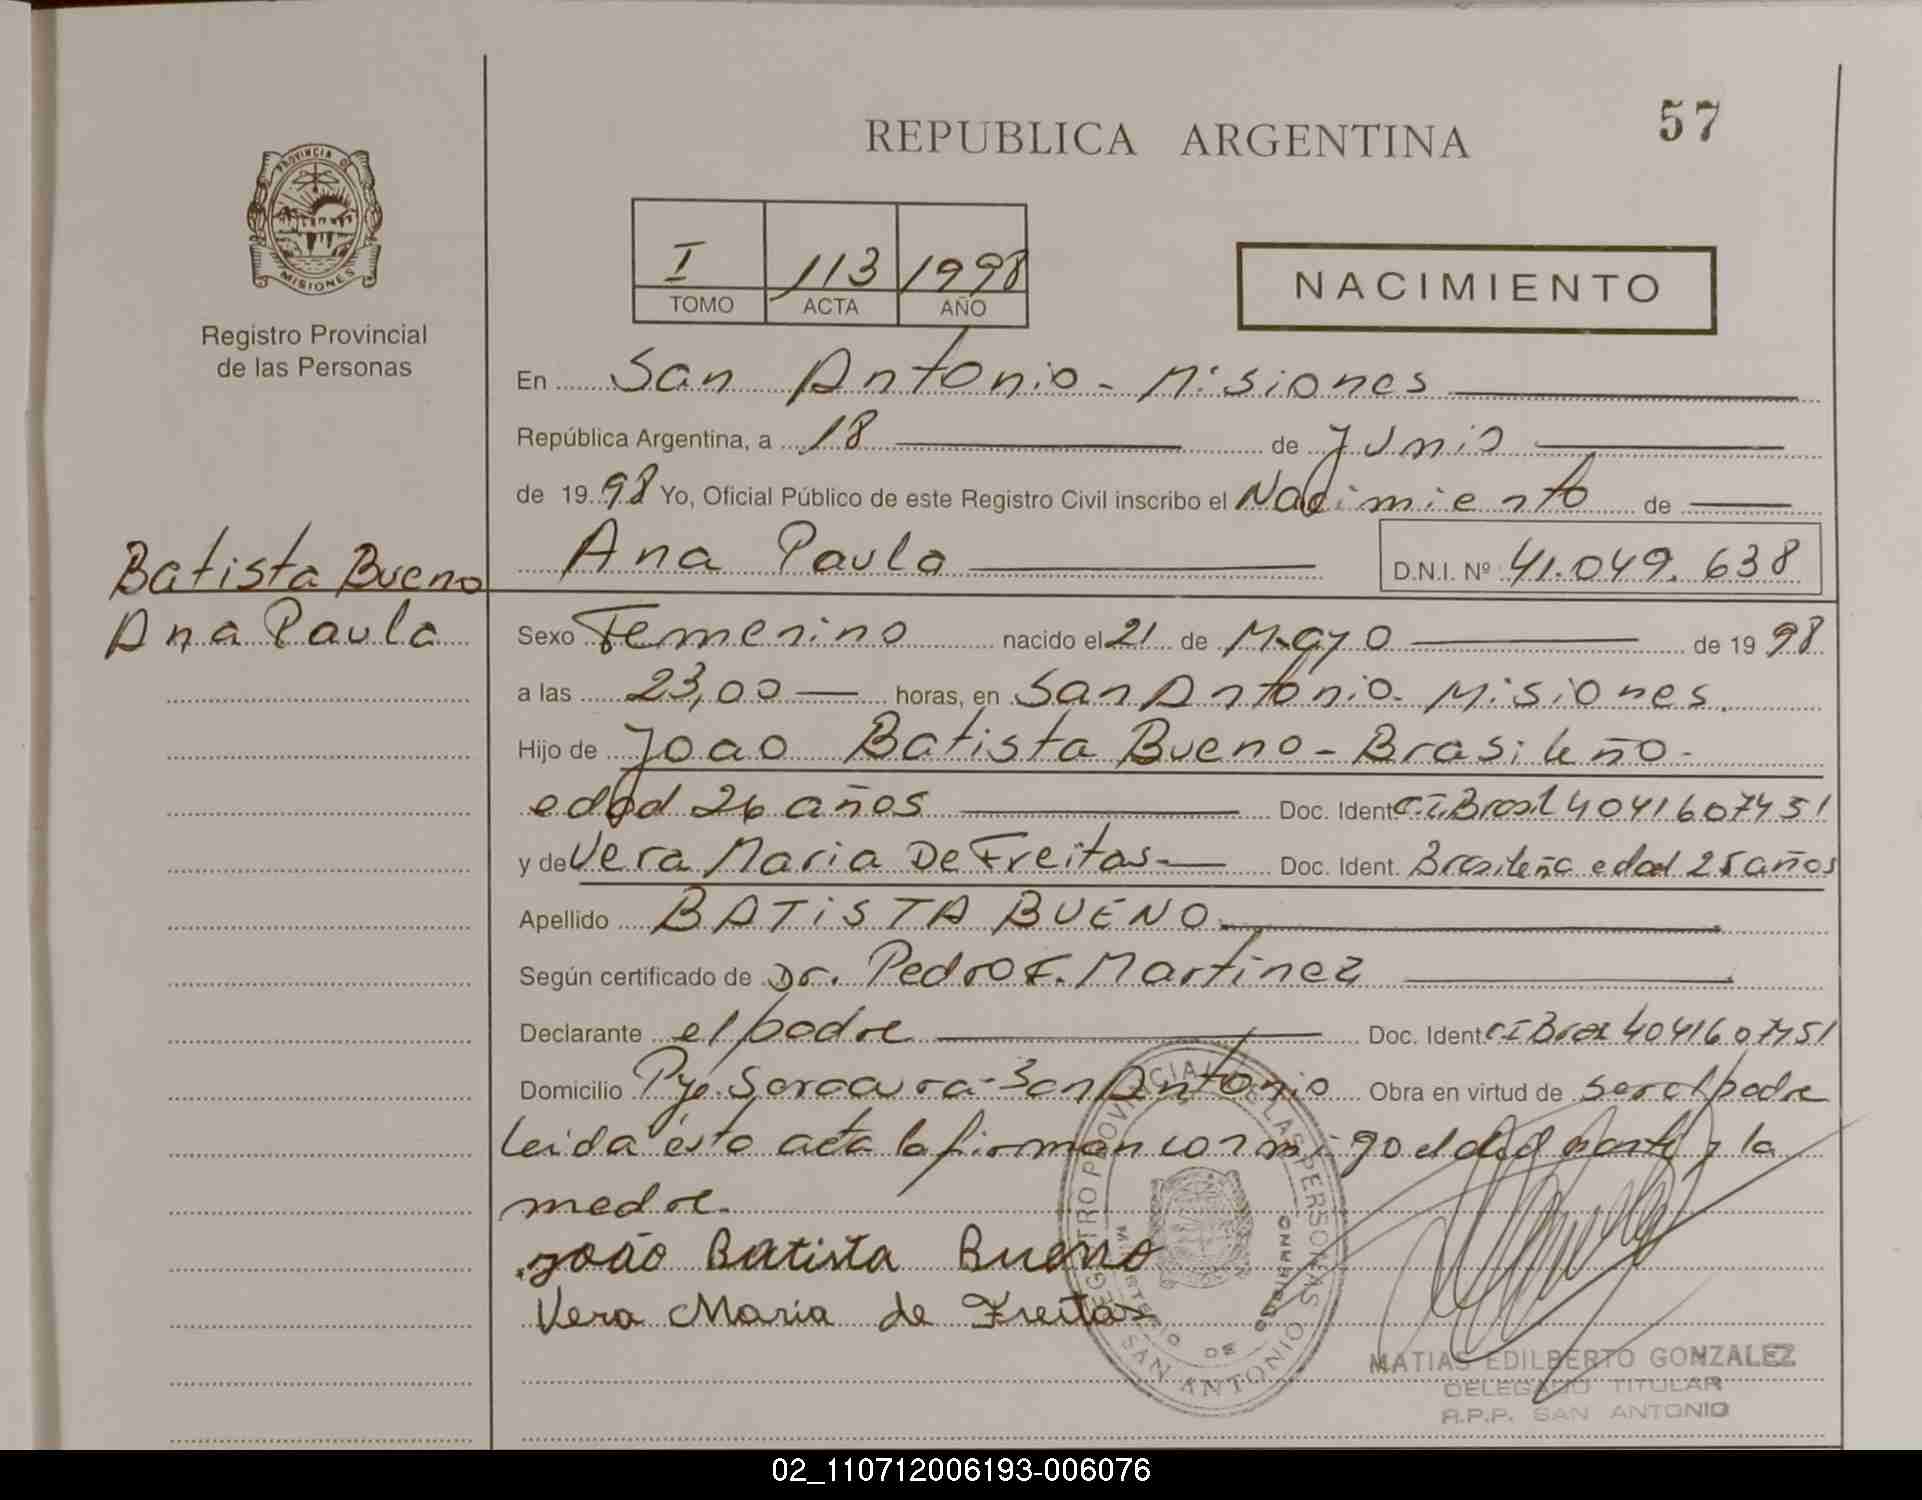 57
REPUBLICA ARGENTINA
PROVINCIA DE
MISIONES
Registro Provincial
de las Personas
I 113 1998
TOMO ACTA AÑO
NACIMIENTO
En San Antonio - Misiones
República Argentina, a 18 de Junio
de 1998 Yo, Oficial Público de este Registro Civil inscribo el Nacimiento de
Ana Paula D.N.I. Nº 41.049.638
Batista Bueno
Ana Paula
Sexo Femenino nacido el 21 de Mayo de 1998
a las 23,00 horas, en San Antonio - Misiones.
Hijo de Joao Batista Bueno - Brasileño -
edad 26 años Doc. Ident C.I. Brasil 4041607451
y de Vera Maria De Freitas - Doc. Ident. Brasileña edad 25 años
Apellido BATISTA BUENO
Según certificado de Dr. Pedro F. Martinez
Declarante el padre Doc. Ident C I Bras 4041607451
Domicilio Pje. San Antonio Obra en virtud de ser el padre
Leida esta acta la firman conmigo el y la
madre.
João Batista Bueno
Vera Maria de Freitas
REGISTRO PROVINCIAL DE LAS PERSONAS
MINISTERIO DE GOBIERNO
SAN ANTONIO
MATIAS EDILBERTO GONZALEZ
DELEGADO TITULAR
R.P.P. SAN ANTONIO
02_110712006193-006076